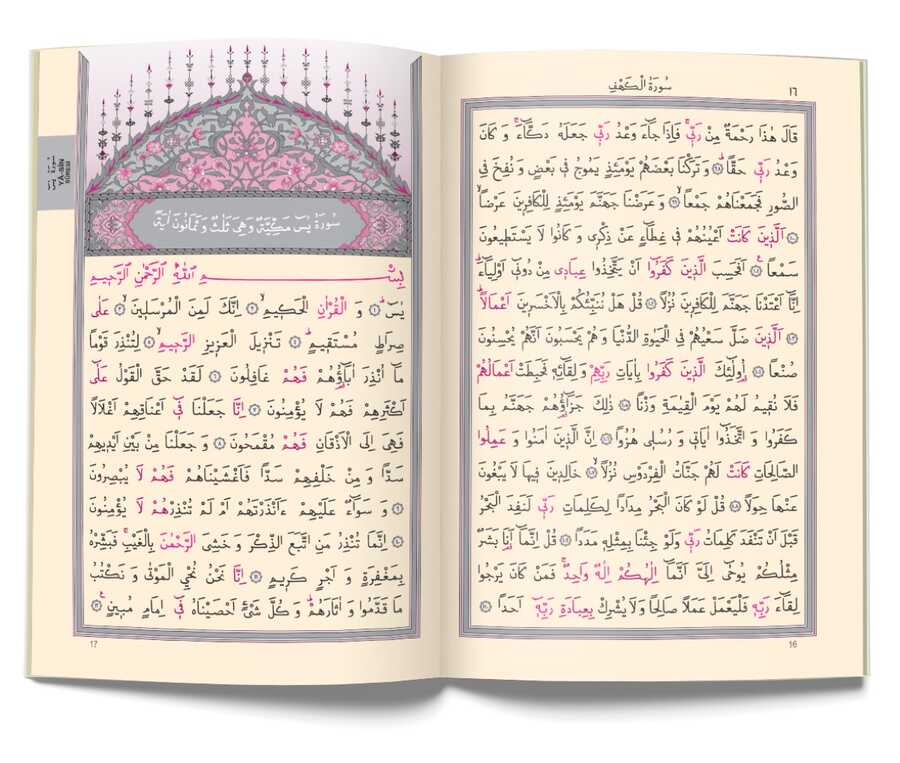 سُورَةُ الْكَهْفِ ١٦
قَالَ هٰذَا رَحْمَةٌ مِنْ رَبّٖيۚ فَاِذَا جَٓاءَ وَعْدُ رَبّٖي جَعَلَهُ دَكَّٓاءَۚ وَ كَانَ
وَعْدُ رَبّٖي حَقًّاۜ ﴿٩٨﴾ وَ تَرَكْنَا بَعْضَهُمْ يَوْمَئِذٍ يَمُوجُ فٖي بَعْضٍ وَ نُفِخَ فِي
الصُّورِ فَجَمَعْنَاهُمْ جَمْعًاۙ ﴿٩٩﴾ وَ عَرَضْنَا جَهَنَّمَ يَوْمَئِذٍ لِلْكَافِرٖينَ عَرْضًاۙ
﴿١٠٠﴾ اَلَّذٖينَ كَانَتْ اَعْيُنُهُمْ فٖي غِطَٓاءٍ عَنْ ذِكْرٖي وَ كَانُوا لَا يَسْتَطٖيعُونَ
سَمْعًاۚ ﴿١٠١﴾ اَفَحَسِبَ الَّذٖينَ كَفَرُٓوا اَنْ يَتَّخِذُوا عِبَادٖي مِنْ دُونٖٓي اَوْلِيَٓاءَۜ
اِنَّٓا اَعْتَدْنَا جَهَنَّمَ لِلْكَافِرٖينَ نُزُلًا ﴿١٠٢﴾ قُلْ هَلْ نُنَبِّئُكُمْ بِالْاَخْسَرٖينَ اَعْمَالًاۜ
﴿١٠٣﴾ اَلَّذٖينَ ضَلَّ سَعْيُهُمْ فِي الْحَيٰوةِ الدُّنْيَا وَ هُمْ يَحْسَبُونَ اَنَّهُمْ يُحْسِنُونَ
صُنْعًا ﴿١٠٤﴾ اُو۬لٰٓئِكَ الَّذٖينَ كَفَرُوا بِاٰيَاتِ رَبِّهِمْ وَ لِقَٓائِهٖ فَحَبِطَتْ اَعْمَالُهُمْ
فَلَا نُقٖيمُ لَهُمْ يَوْمَ الْقِيٰمَةِ وَزْنًا ﴿١٠٥﴾ ذٰلِكَ جَزَٓاؤُ۬هُمْ جَهَنَّمُ بِمَا
كَفَرُوا وَ اتَّخَذُٓوا اٰيَاتٖي وَ رُسُلٖي هُزُوًا ﴿١٠٦﴾ اِنَّ الَّذٖينَ اٰمَنُوا وَ عَمِلُوا
الصَّالِحَاتِ كَانَتْ لَهُمْ جَنَّاتُ الْفِرْدَوْسِ نُزُلًاۙ ﴿١٠٧﴾ خَالِدٖينَ فٖيهَا لَا يَبْغُونَ
عَنْهَا حِوَلًا ﴿١٠٨﴾ قُلْ لَوْ كَانَ الْبَحْرُ مِدَادًا لِكَلِمَاتِ رَبّٖي لَنَفِدَ الْبَحْرُ
قَبْلَ اَنْ تَنْفَدَ كَلِمَاتُ رَبّٖي وَلَوْ جِئْنَا بِمِثْلِهٖ مَدَدًا ﴿١٠٩﴾ قُلْ اِنَّمَٓا اَنَا۬ بَشَرٌ
مِثْلُكُمْ يُوحٰٓى اِلَيَّ اَنَّمَٓا اِلٰهُكُمْ اِلٰهٌ وَاحِدٌۚ فَمَنْ كَانَ يَرْجُوا
لِقَٓاءَ رَبِّهٖ فَلْيَعْمَلْ عَمَلًا صَالِحًا وَلَا يُشْرِكْ بِعِبَادَةِ رَبِّهٖٓ اَحَدًا ﴿١١٠﴾
16
سورة يس
YÂ-SÎN
SÛRESİ
سُورَةُ يٰسٓ مَكِّيَّةٌ وَهِيَ ثَلٰثٌ وَثَمَانُونَ اٰيَةً
بِسْمِ اللّٰهِ الرَّحْمٰنِ الرَّحٖيمِ
يٰسٓۜ ﴿١﴾ وَ الْقُرْاٰنِ الْحَكٖيمِۙ ﴿٢﴾ اِنَّكَ لَمِنَ الْمُرْسَلٖينَۙ ﴿٣﴾ عَلٰى
صِرَاطٍ مُسْتَقٖيمٍۜ ﴿٤﴾ تَنْزٖيلَ الْعَزٖيزِ الرَّحٖيمِۙ ﴿٥﴾ لِتُنْذِرَ قَوْمًا
مَٓا اُنْذِرَ اٰبَٓاؤُ۬هُمْ فَهُمْ غَافِلُونَ ﴿٦﴾ لَقَدْ حَقَّ الْقَوْلُ عَلٰٓى
اَكْثَرِهِمْ فَهُمْ لَا يُؤْمِنُونَ ﴿٧﴾ اِنَّا جَعَلْنَا فٖٓي اَعْنَاقِهِمْ اَغْلَالًا
فَهِيَ اِلَى الْاَذْقَانِ فَهُمْ مُقْمَحُونَ ﴿٨﴾ وَ جَعَلْنَا مِنْ بَيْنِ اَيْدٖيهِمْ
سَدًّا وَ مِنْ خَلْفِهِمْ سَدًّا فَاَغْشَيْنَاهُمْ فَهُمْ لَا يُبْصِرُونَ
﴿٩﴾ وَ سَوَٓاءٌ عَلَيْهِمْ ءَاَنْذَرْتَهُمْ اَمْ لَمْ تُنْذِرْهُمْ لَا يُؤْمِنُونَ
﴿١٠﴾ اِنَّمَا تُنْذِرُ مَنِ اتَّبَعَ الذِّكْرَ وَ خَشِيَ الرَّحْمٰنَ بِالْغَيْبِۚ فَبَشِّرْهُ
بِمَغْفِرَةٍ وَ اَجْرٍ كَرٖيمٍ ﴿١١﴾ اِنَّا نَحْنُ نُحْيِ الْمَوْتٰى وَ نَكْتُبُ
مَا قَدَّمُوا وَ اٰثَارَهُمْۜ وَ كُلَّ شَيْءٍ اَحْصَيْنَاهُ فٖٓي اِمَامٍ مُبٖينٍ۟ ﴿١٢﴾
17